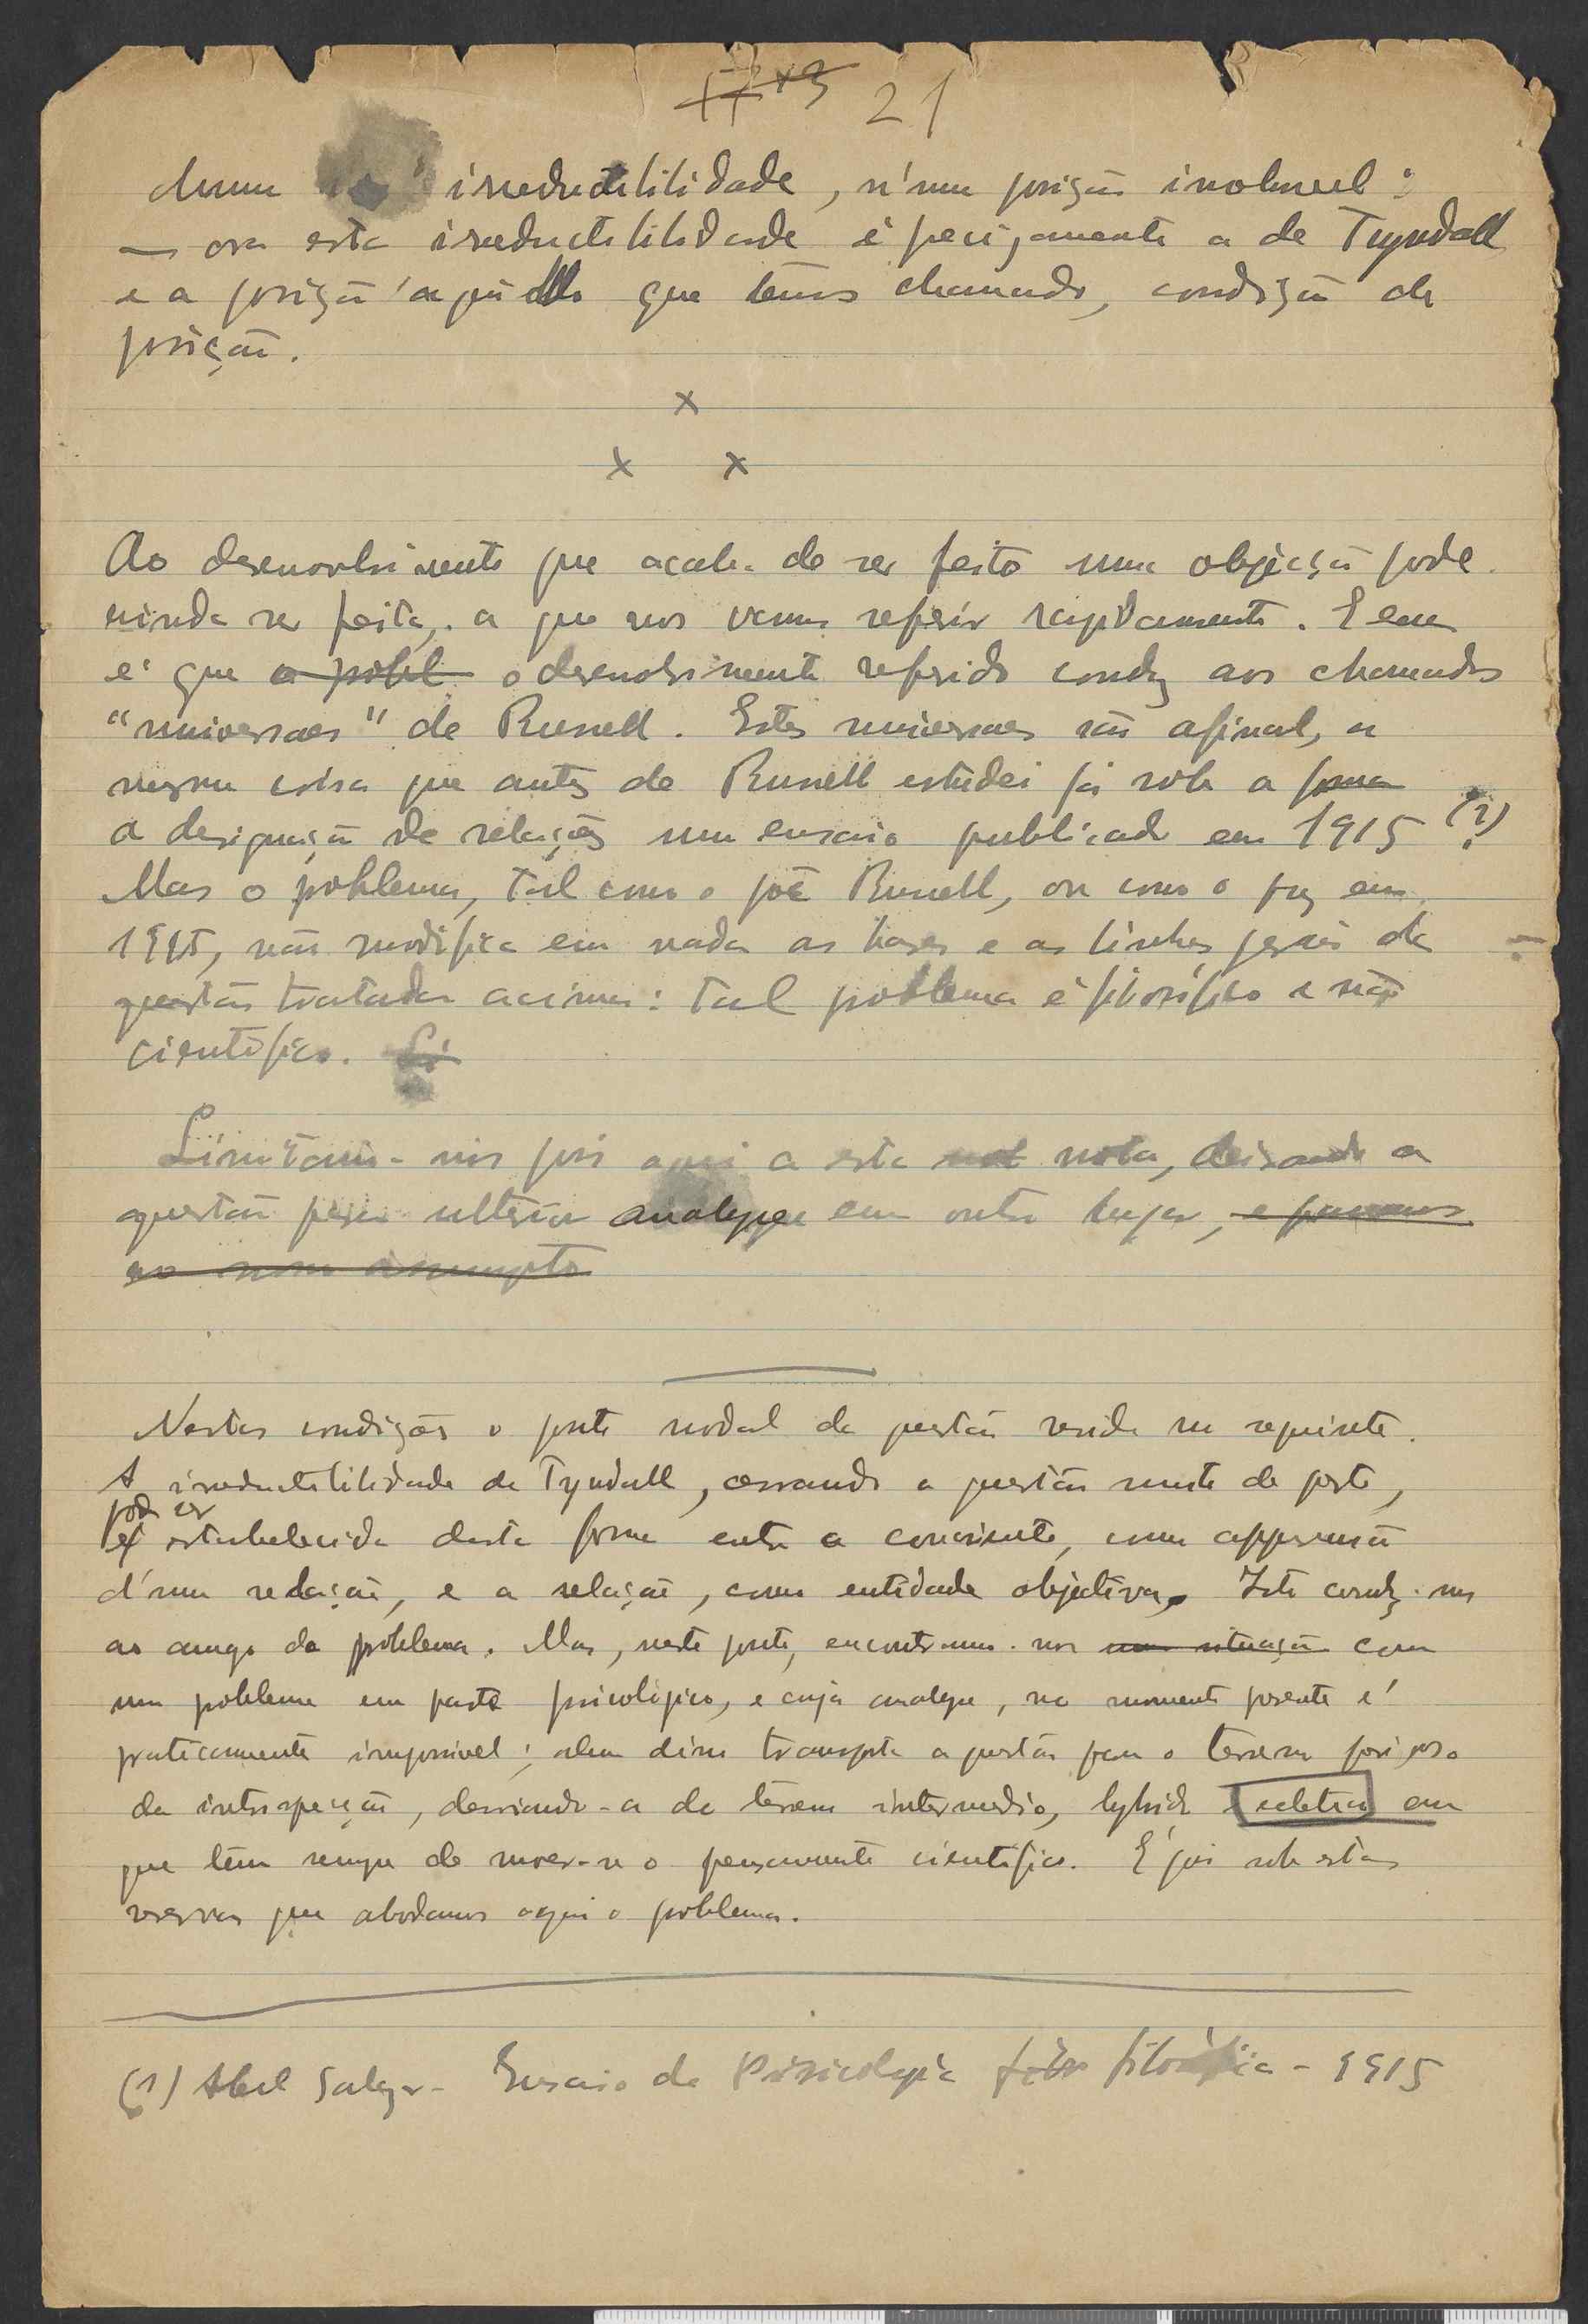 21
numa irreductibilidade, n'uma posição insoluvel:
— ora esta irreductibilidade é precisamente a de Tyndall
e a posição aquillo que temos chamado, condição de
posição.
x
x x
Ao desenvolvimento que acaba de ser feito uma objecção pode
ainda ser feita, a que nos vamos referir rapidamente. E essa
é que a probl o desenvolvimento referido conduz aos chamados
"universaes" de Russell. Estes universaes são afinal, a
mesma coisa que antes de Russell estudei já sob a forma
a designação de relações num ensaio publicado em 1915 (1)
Mas o problema, tal como o põe Russell, ou como o fiz em
1915, não modifica em nada as bases e as linhas geraes da
questão tratada acima: tal problema é filosófico e não
científico.
Limitamo-nos pois aqui a esta not nota, deixando a
questão para ulterior analyse em outro lugar, e passemos
ao nosso assumpto
Nestas condições o ponto nodal da questão reside no seguinte.
A irreductibilidade de Tyndall, cerrando a questão muito de perto,
pode ser
é estabelecida desta forma entre a consciente, como appreensão
d'uma relação, e a relação, como entidade objectiva. Isto conduz-nos
ao amago do problema. Mas, neste ponto, encontramo-nos uma situação com
um problema em parte psicológico, e cuja analyse, no momento presente é
praticamente impossivel; alem disso transporta a questão para o terreno perigoso
da introspecção, desviando-a do terreno intermedio, hybrido em
que tem sempre de mover-se o pensamento científico. E' pois sob estas
reservas que abordamos aqui o problema.
(1) Abel Salazar - Ensaio de Psicologia filosófica - 1915